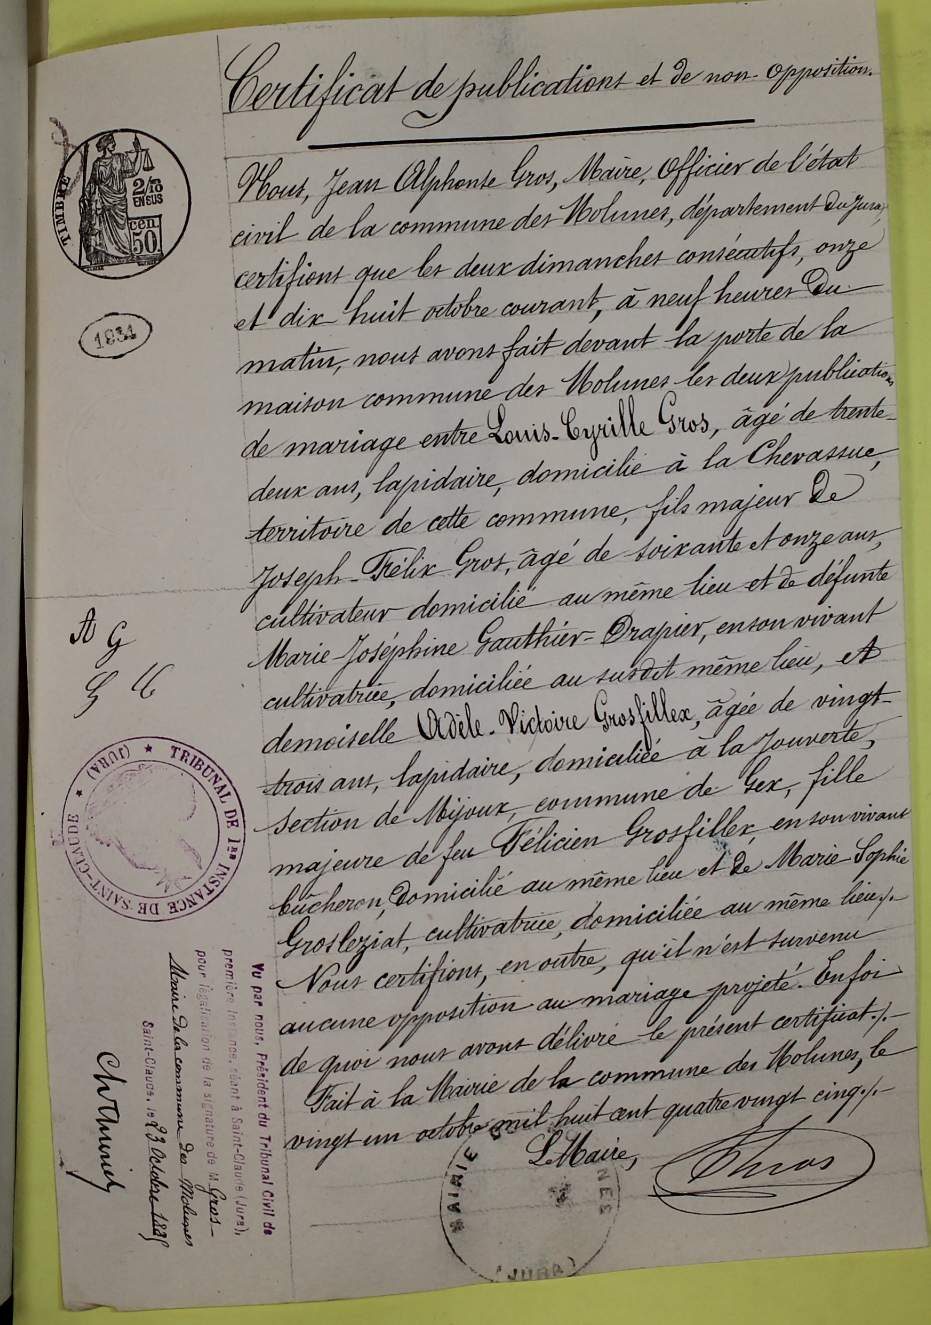 Certificat de publications et de non-opposition.
TIMBRE
2/10
EN SUS
cen
50.
1834
Nous, Jean Alphonse Gros, Maire, Officier de l'état
civil de la commune des Molunes, département du Jura,
certifions que les deux dimanches consécutifs, onze
et dix huit octobre courant, à neuf heures du
matin, nous avons fait devant la porte de la
maison commune des Molunes les deux publications
de mariage entre Louis-Cyrille Gros, âgé de trente-
deux ans, lapidaire, domicilié à la Chevassue,
territoire de cette commune, fils majeur de
Joseph-Félix Gros, âgé de soixante et onze ans,
cultivateur domicilié au même lieu et de défunte
Marie-Joséphine Gauthier=Drapier, en son vivant
cultivatrice, domiciliée au susdit même lieu, et
demoiselle Adèle-Victoire Grosfillex, âgée de vingt-
trois ans, lapidaire, domiciliée à la Jouverte,
section de Mijoux, commune de Gex, fille
majeure de feu Félicien Grosfillex, en son vivant
bûcheron, domicilié au même lieu et de Marie-Sophie
Grosleziat, cultivatrice, domiciliée au même lieu./.-
Nous certifions, en outre, qu'il n'est survenu
aucune opposition au mariage projeté. En foi
de quoi nous avons délivré le présent certificat./.-
Fait à la Mairie de la commune des Molunes, le
vingt un octobre mil huit cent quatre vingt cinq./.-
Le Maire,
Gros
MAIRIE
NES
(JURA)
A G
G
TRIBUNAL DE 1RE INSTANCE DE SAINT-CLAUDE (JURA)
Vu par nous, Président du Tribunal Civil de
première Instance, séant à Saint-Claude (Jura),
pour légalisation de la signature de M. Gros-
Maire de la commune des Molunes
Saint-Claude, le 23 Octobre 1885